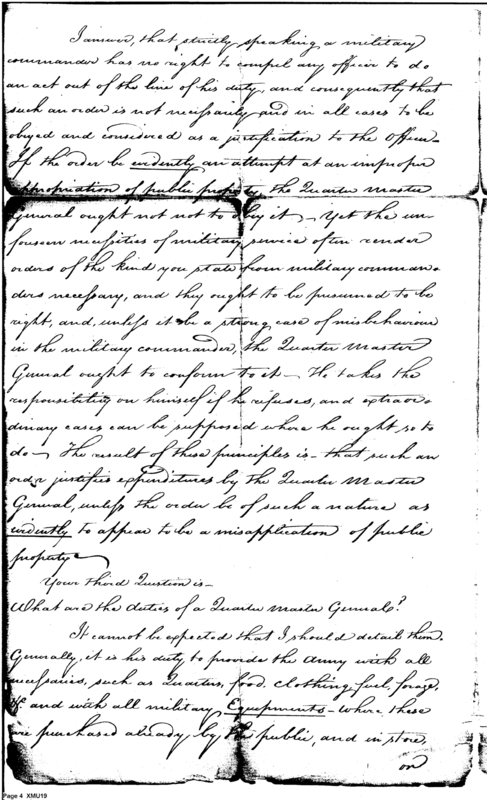 I answer, that strictly speaking a military
commander has no right to compel any officer to do
an act out of the line of his duty, and consequently that
such an order is not necessarily and in all cases to be
obeyed and considered as a justification to the Officer—
If the order be evidently an attempt at an improper
appropriation of public property the Quarter Master
General ought not not to obey it — Yet the un-
foreseen necessities of military service often render
orders of the kind you state from military comman-
ders necessary, and they ought to be presumed to be
right, and, unless it be a strong case of misbehaviour
in the military commander, the Quarter Master
General ought to conform to it — He takes the
responsibility on himself if he refuses, and extraor-
dinary cases can be supposed where he ought so to
do — The result of these principles is — that such an
order justifies expenditures by the Quarter Master
General, unless the order be of such a nature as
evidently to appear to be a misapplication of public
property —
Your third Question is —
What are the duties of a Quarter Master General?
It cannot be expected that I should detail them.
Generally, it is his duty to provide the Army with all
necessaries, such as Quarters, food, clothing, fuel, forage,
&c and with all military Equipments — where these
are purchased already by the public, and in store,
on
Page 4 XMU19